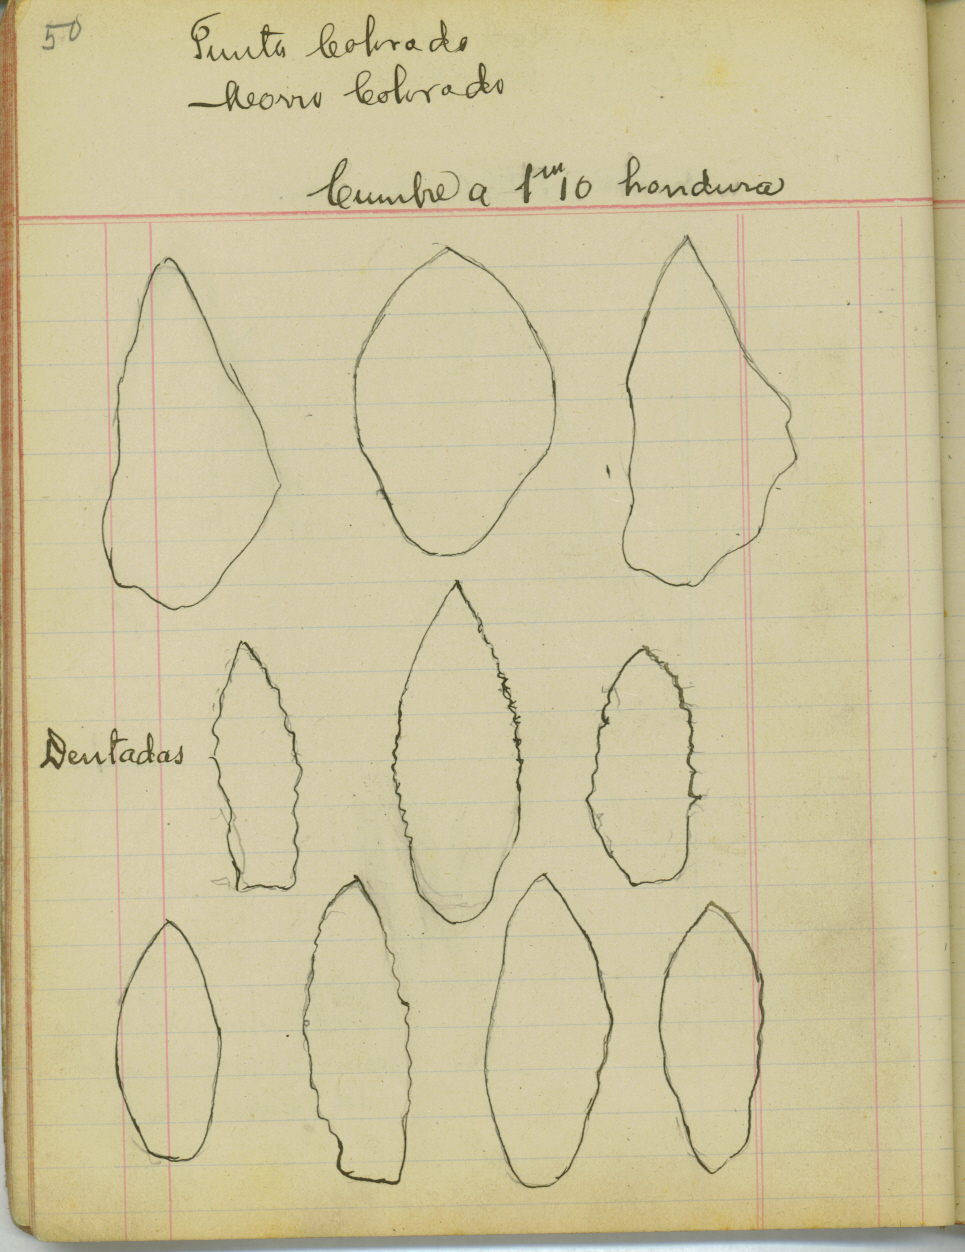 50
Punta Colorado
— Morro Colorado
Cumbre a 1m10 hondura
Dentadas